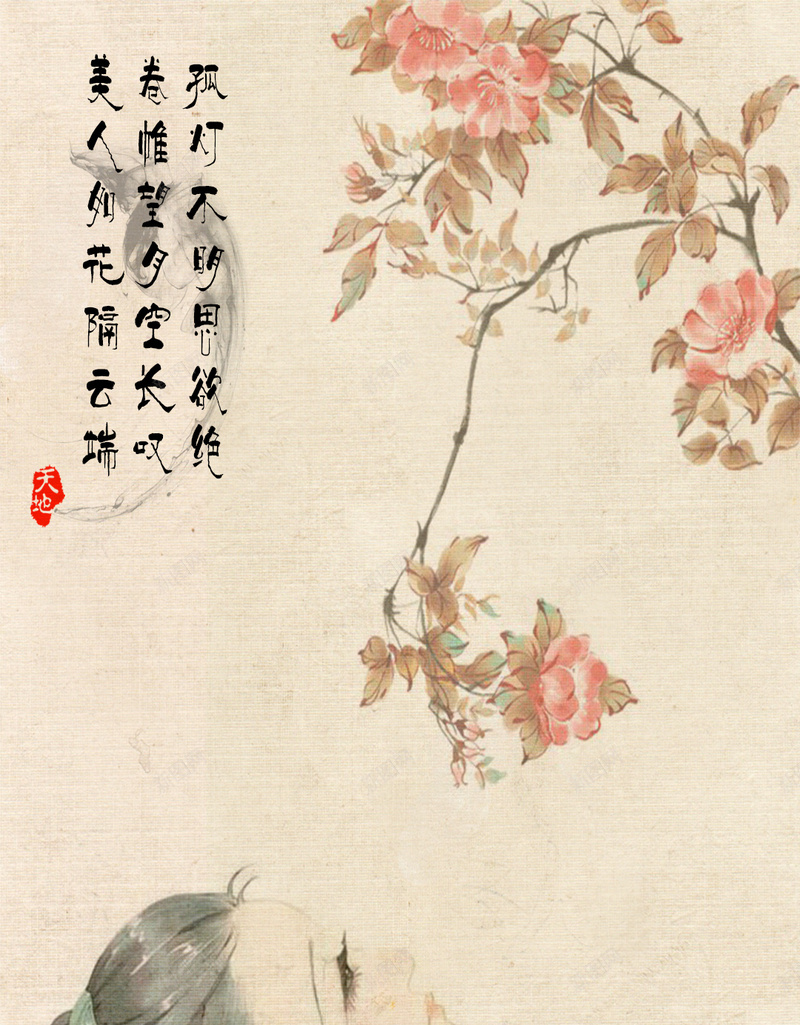 孤灯不明思欲绝
卷帷望月空长叹
美人如花隔云端
天地